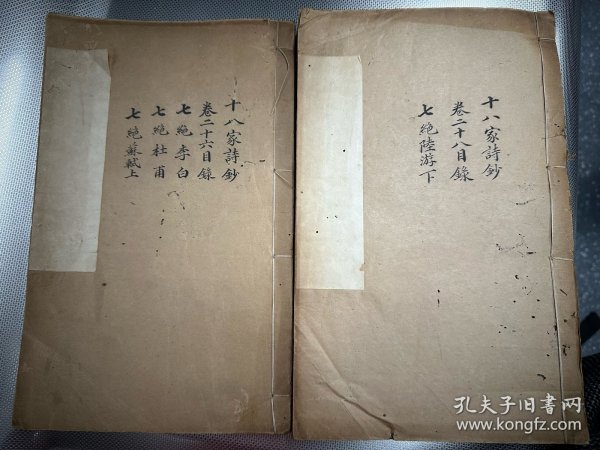 十八家詩鈔
卷二十六目錄
七絕李白
七絕杜甫
七絕蘇軾上
十八家詩鈔
卷二十八目錄
七絕陸游下
孔夫子旧书网
www.kongfz.com